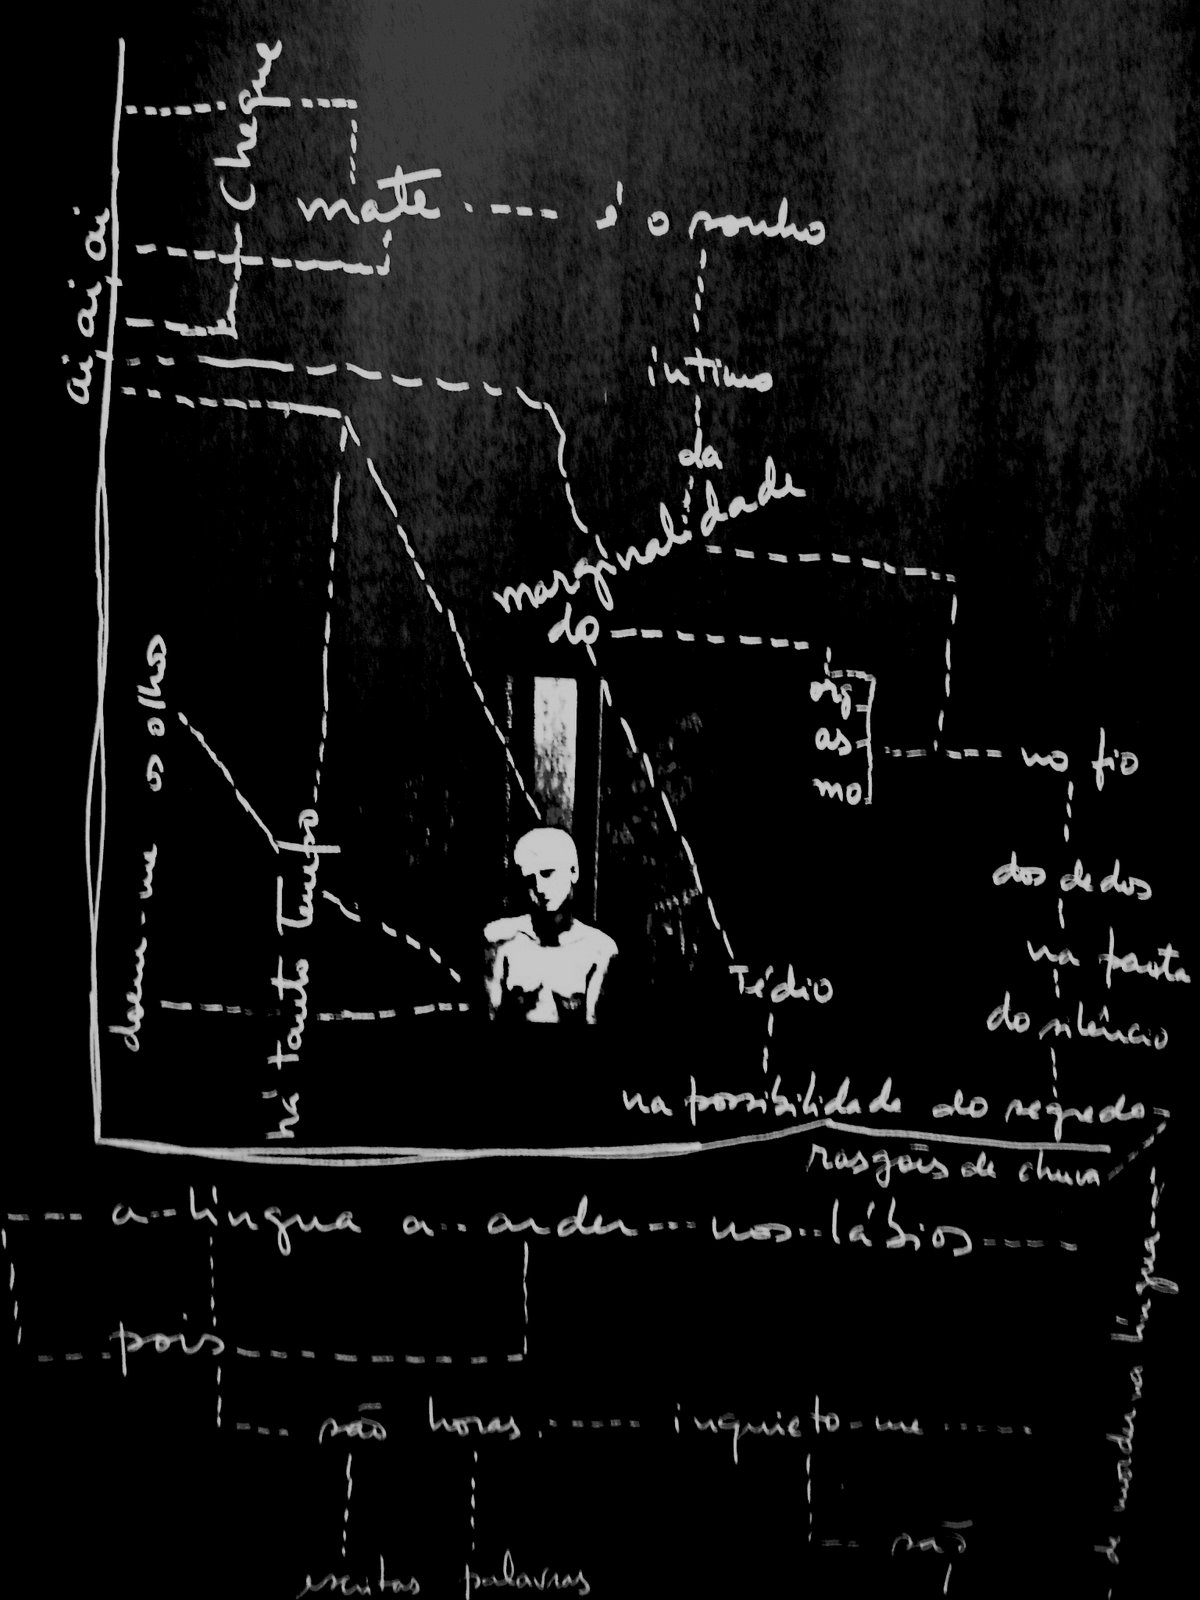 Cheque
mate é o sonho
ai, ai, ai
íntimo
da
marginalidade
do
org
as
mo
no fio
doem-me os olhos
há tanto tempo
dos dedos
na pauta
do silêncio
Tédio
na possibilidade do segredo
rasgões de chuva
a língua a arder nos lábios
de morder na língua
pois
são horas. inquieto-me
são
escritas palavras